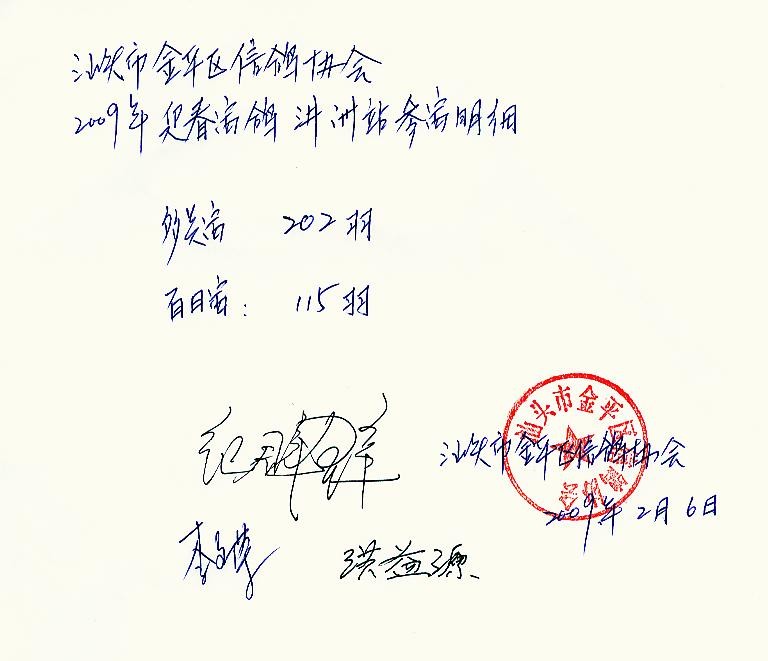 汕头市金平区信鸽协会
2009年 迎春赛鸽 洲站参赛明细
多关赛 202羽
百日赛: 115羽
汕头市金平区信鸽协会
汕头市金平区信鸽协会
2009年2月6日
洪益源